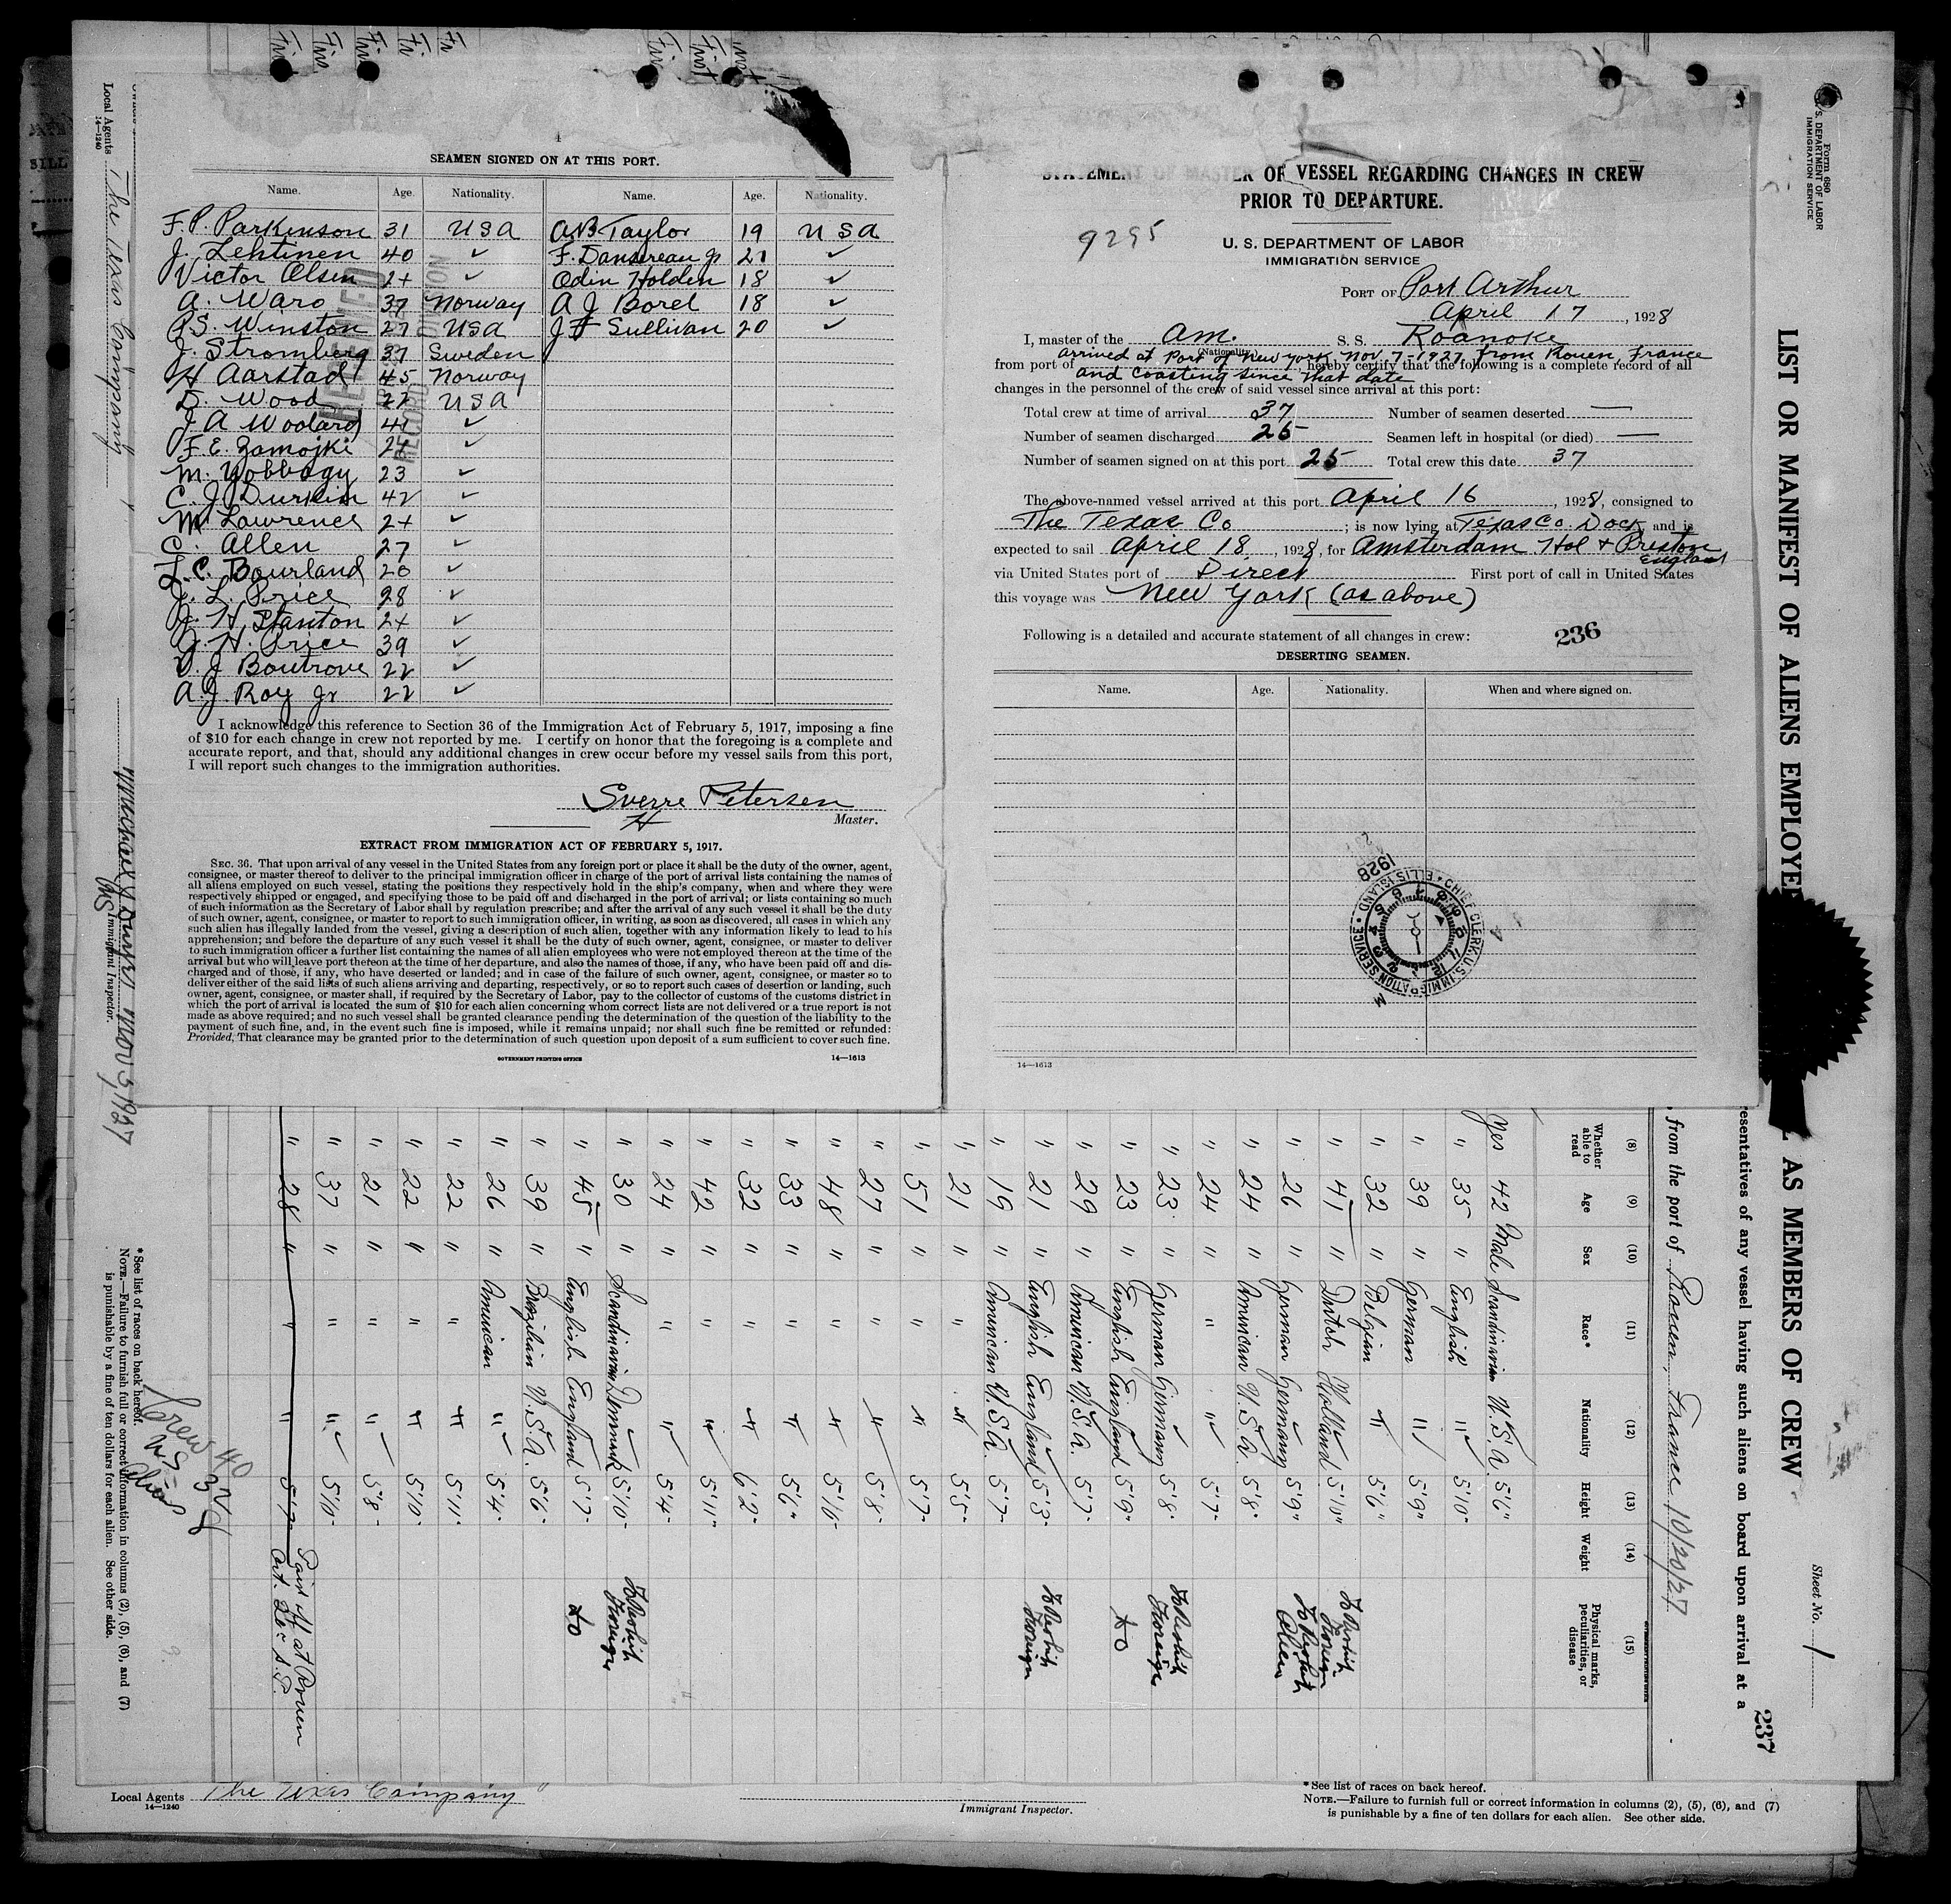 SEAMEN SIGNED ON AT THIS PORT.
Name. Age. Nationality. Name. Age. Nationality.
F. P. Parkinson 31 USA A B Taylor 19 USA
J. Lehtinen 40 ✓ F. Dansereau Jr 21 ✓
Victor Olsen 24 ✓ Odin Holden 18 ✓
A. Waro 37 Norway A J Borel 18 ✓
P.S. Winston 27 USA J F Sullivan 20 ✓
J. Stromberg 37 Sweden
H Aarstad 45 Norway
D. Wood 27 USA
J A Woolard 41 ✓
F. E. Zamojki 24 ✓
M. Yobbagy 23 ✓
C. J. Durkin 42 ✓
M Lawrence 24 ✓
C. Allen 27 ✓
L. C. Bourland 20 ✓
J. L. Price 28 ✓
J. H. Stanton 24 ✓
J. H. Price 39 ✓
D. J Boutrove 22 ✓
A. J. Roy Jr 22 ✓
I acknowledge this reference to Section 36 of the Immigration Act of February 5, 1917, imposing a fine
of $10 for each change in crew not reported by me. I certify on honor that the foregoing is a complete and
accurate report, and that, should any additional changes in crew occur before my vessel sails from this port,
I will report such changes to the immigration authorities.
Sverre Petersen
Master.
EXTRACT FROM IMMIGRATION ACT OF FEBRUARY 5, 1917.
SEC. 36. That upon arrival of any vessel in the United States from any foreign port or place it shall be the duty of the owner, agent,
consignee, or master thereof to deliver to the principal immigration officer in charge of the port of arrival lists containing the names of
all aliens employed on such vessel, stating the positions they respectively hold in the ship's company, when and where they were
respectively shipped or engaged, and specifying those to be paid off and discharged in the port of arrival; or lists containing so much
of such information as the Secretary of Labor shall by regulation prescribe; and after the arrival of any such vessel it shall be the duty
of such owner, agent, consignee, or master to report to such immigration officer, in writing, as soon as discovered, all cases in which any
such alien has illegally landed from the vessel, giving a description of such alien, together with any information likely to lead to his
apprehension; and before the departure of any such vessel it shall be the duty of such owner, agent, consignee, or master to deliver
to such immigration officer a further list containing the names of all alien employees who were not employed thereon at the time of the
arrival but who will leave port thereon at the time of her departure, and also the names of those, if any, who have been paid off and dis-
charged and of those, if any, who have deserted or landed; and in case of the failure of such owner, agent, consignee, or master so to
deliver either of the said lists of such aliens arriving and departing, respectively, or so to report such cases of desertion or landing, such
owner, agent, consignee, or master shall, if required by the Secretary of Labor, pay to the collector of customs of the customs district in
which the port of arrival is located the sum of $10 for each alien concerning whom correct lists are not delivered or a true report is not
made as above required; and no such vessel shall be granted clearance pending the determination of the question of the liability to the
payment of such fine, and, in the event such fine is imposed, while it remains unpaid; nor shall such fine be remitted or refunded:
Provided, That clearance may be granted prior to the determination of such question upon deposit of a sum sufficient to cover such fine.
GOVERNMENT PRINTING OFFICE 14—1613
STATEMENT OF MASTER OF VESSEL REGARDING CHANGES IN CREW
PRIOR TO DEPARTURE.
9295
U. S. DEPARTMENT OF LABOR
IMMIGRATION SERVICE
PORT OF Port Arthur
April 17, 1928
I, master of the Am. S. S. Roanoke
(Nationality)
arrived at Port of New York Nov. 7-1927 from Rouen, France
from port of and coasting since that date, hereby certify that the following is a complete record of all
changes in the personnel of the crew of said vessel since arrival at this port:
Total crew at time of arrival 37 Number of seamen deserted —
Number of seamen discharged 25 Seamen left in hospital (or died) —
Number of seamen signed on at this port 25 Total crew this date 37
The above-named vessel arrived at this port April 16, 1928, consigned to
The Texas Co; is now lying at Texas Co. Dock and is
expected to sail April 18, 1928, for Amsterdam Hol + Preston England
via United States port of Direct First port of call in United States
this voyage was New York (as above)
Following is a detailed and accurate statement of all changes in crew:
236
DESERTING SEAMEN.
Name. Age. Nationality. When and where signed on.
CHIEF CLERK U.S. IMMIGRATION SERVICE ELLIS ISLAND
1928
14—1613
Form 680
U. S. DEPARTMENT OF LABOR
IMMIGRATION SERVICE
LIST OR MANIFEST OF ALIENS EMPLOYED
AS MEMBERS OF CREW
Sheet No. 1
237
resentatives of any vessel having such aliens on board upon arrival at a
from the port of Rouen, France 10/20/27
(8) (9) (10) (11) (12) (13) (14) (15)
Whether able to read Age Sex Race* Nationality Height Weight Physical marks, peculiarities, or disease
yes 42 Male Scandinavian U.S.A. 5'6"
" 35 " English " 5'10"
" 39 " German " 5'9"
" 32 " Belgian " 5'6"
" 41 " Dutch Holland 5'10" To Reship Foreign
" 26 " German Germany 5'9" To Reship
" 24 " American U.S.A. 5'8"
" 24 " " " 5'7"
" 23 " German Germany 5'8" To Reship Foreign
" 23 " English England 5'9" do
" 29 " American U.S.A. 5'7"
" 21 " English England 5'3" To Reship Foreign
" 19 " American U.S.A. 5'7"
" 21 " " " 5'5"
" 51 " " " 5'7"
" 27 " " " 5'8"
" 48 " " " 5'10"
" 33 " " " 5'6"
" 32 " " " 6'2"
" 42 " " " 5'11"
" 24 " " " 5'4"
" 30 " Scandinavian Denmark 5'10" To Reship Foreign
" 45 " English England 5'7" do
" 39 " Brazilian U.S.A. 5'6"
" 26 " American " 5'4"
" 22 " " " 5'11"
" 22 " " " 5'10"
" 21 " " " 5'8"
" 37 " " " 5'10"
" 28 " " " 5'7" Paid off at Rouen
Crew 40
US = 32
Aliens 8
*See list of races on back hereof.
NOTE.—Failure to furnish full or correct information in columns (2), (5), (6), and (7)
is punishable by a fine of ten dollars for each alien. See other side.
Local Agents The Texas Company
14—1240
Nov 3, 1927
Immigrant Inspector.
RECEIVED
RECORD DIVISION
Local Agents The Texas Company
14—1240
Immigrant Inspector.
*See list of races on back hereof.
NOTE.—Failure to furnish full or correct information in columns (2), (5), (6), and (7)
is punishable by a fine of ten dollars for each alien. See other side.